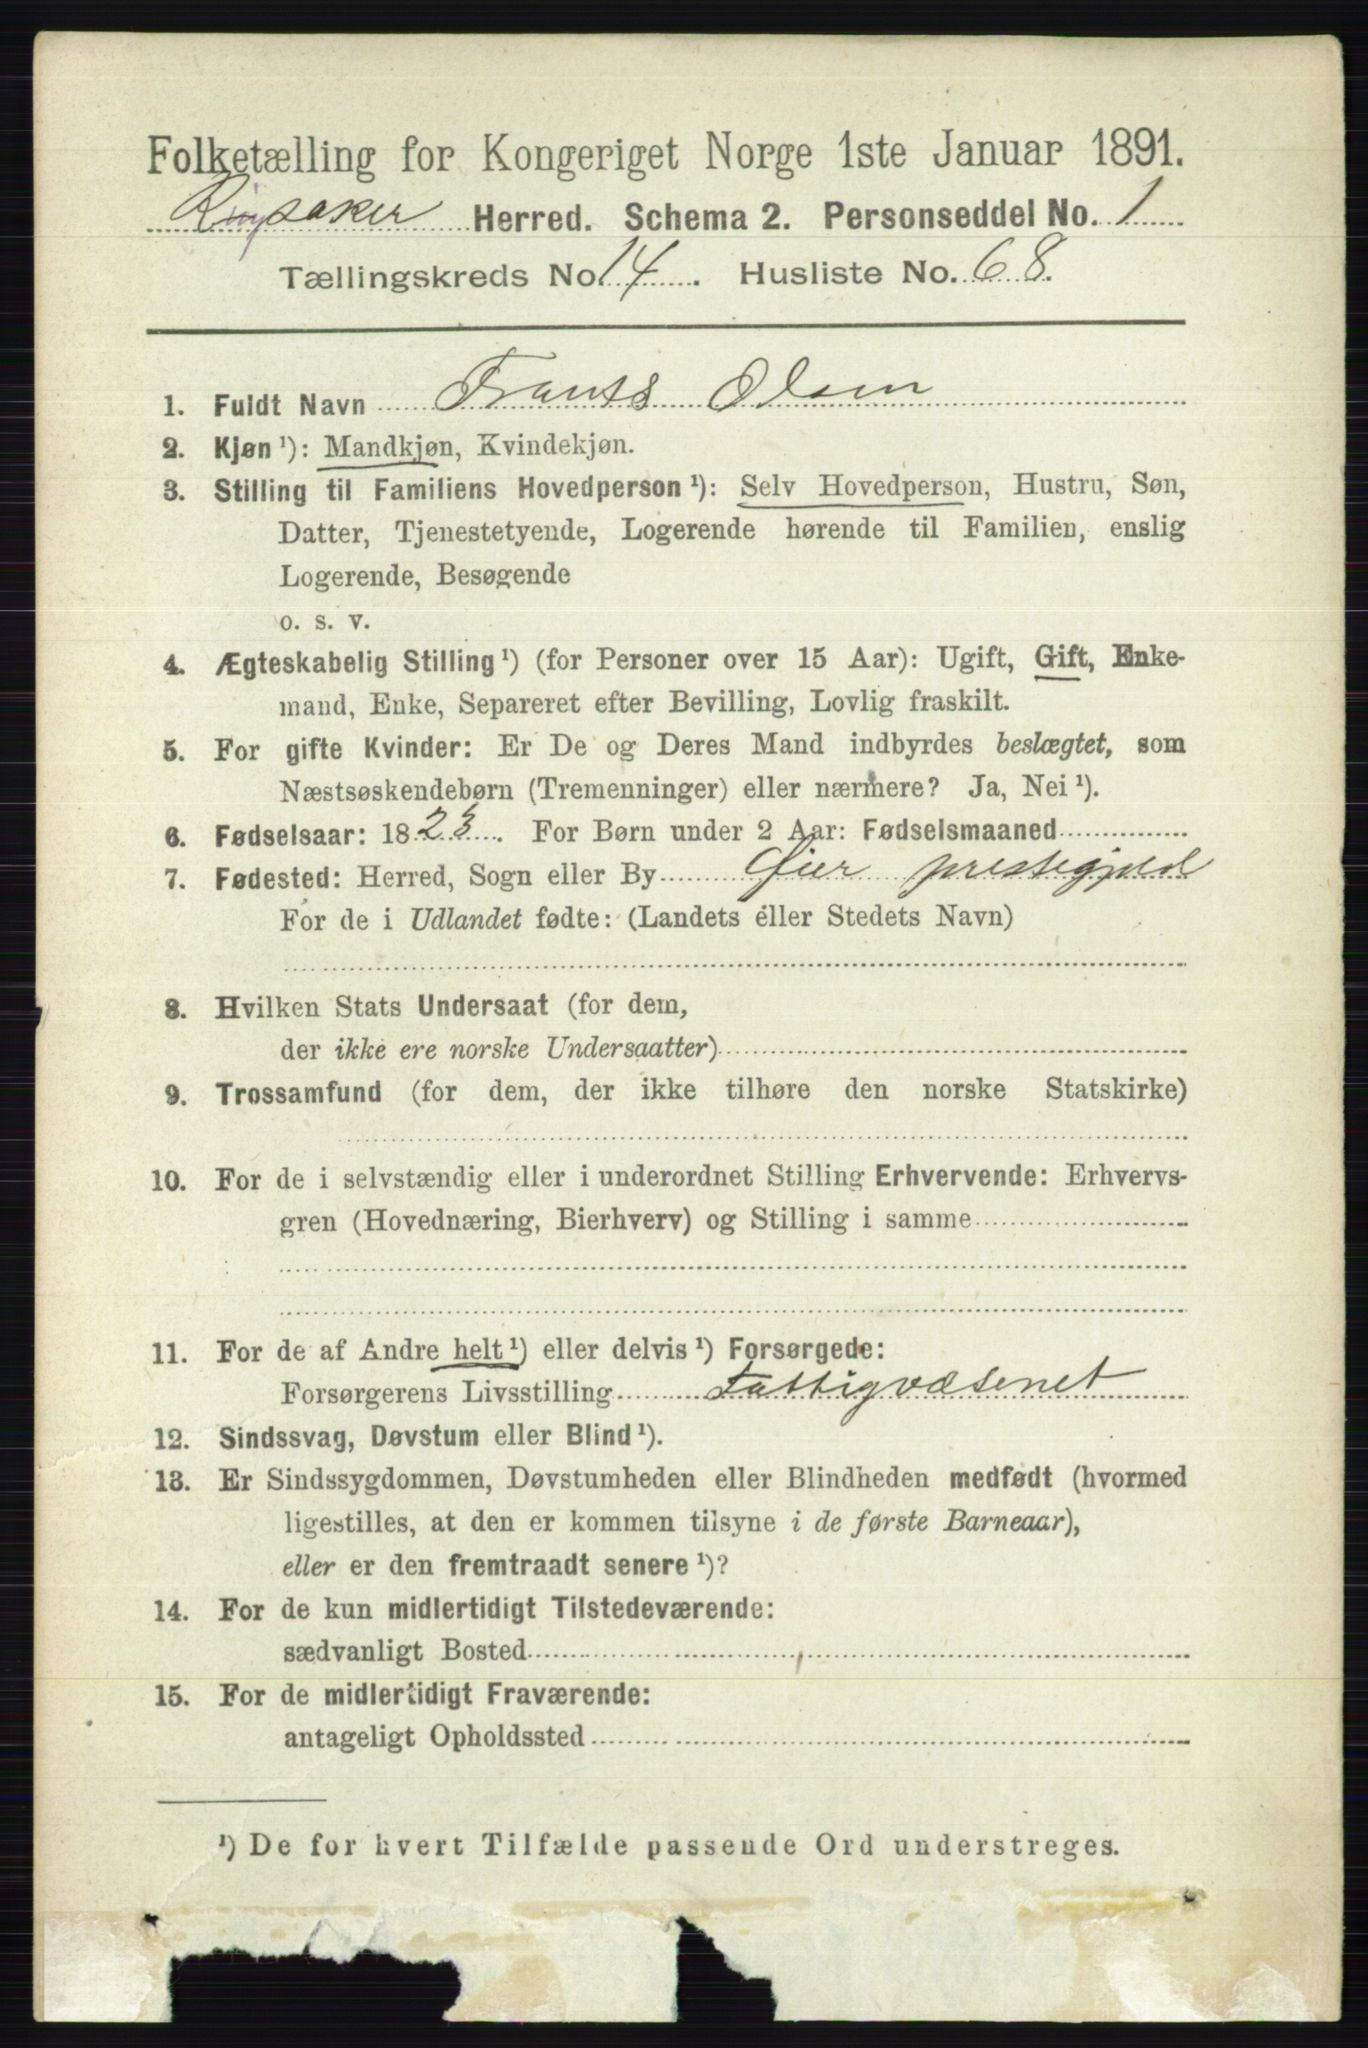 Folketælling for Kongeriget Norge 1ste Januar 1891.
Ringsaker Herred. Schema 2. Personseddel No. 1
Tællingskreds No. 14. Husliste No. 68.
1. Fuldt Navn Frants Olsen
2. Kjøn ¹): Mandkjøn, Kvindekjøn.
3. Stilling til Familiens Hovedperson ¹): Selv Hovedperson, Hustru, Søn,
Datter, Tjenestetyende, Logerende hørende til Familien, enslig
Logerende, Besøgende
o. s. v.
4. Ægteskabelig Stilling ¹) (for Personer over 15 Aar): Ugift, Gift, Enke-
mand, Enke, Separeret efter Bevilling, Lovlig fraskilt.
5. For gifte Kvinder: Er De og Deres Mand indbyrdes beslægtet, som
Næstsøskendebørn (Tremenninger) eller nærmere? Ja, Nei ¹).
6. Fødselsaar: 1823. For Børn under 2 Aar: Fødselsmaaned
7. Fødested: Herred, Sogn eller By Øier prestegjeld
For de i Udlandet fødte: (Landets eller Stedets Navn)
8. Hvilken Stats Undersaat (for dem,
der ikke ere norske Undersaatter)
9. Trossamfund (for dem, der ikke tilhøre den norske Statskirke)
10. For de i selvstændig eller i underordnet Stilling Erhvervende: Erhvervs-
gren (Hovednæring, Bierhverv) og Stilling i samme
11. For de af Andre helt ¹) eller delvis ¹) Forsørgede:
Forsørgerens Livsstilling Fattigvæsenet
12. Sindssvag, Døvstum eller Blind ¹).
13. Er Sindssygdommen, Døvstumheden eller Blindheden medfødt (hvormed
ligestilles, at den er kommen tilsyne i de første Barneaar),
eller er den fremtraadt senere ¹)?
14. For de kun midlertidigt Tilstedeværende:
sædvanligt Bosted
15. For de midlertidigt Fraværende:
antageligt Opholdssted
¹) De for hvert Tilfælde passende Ord understreges.